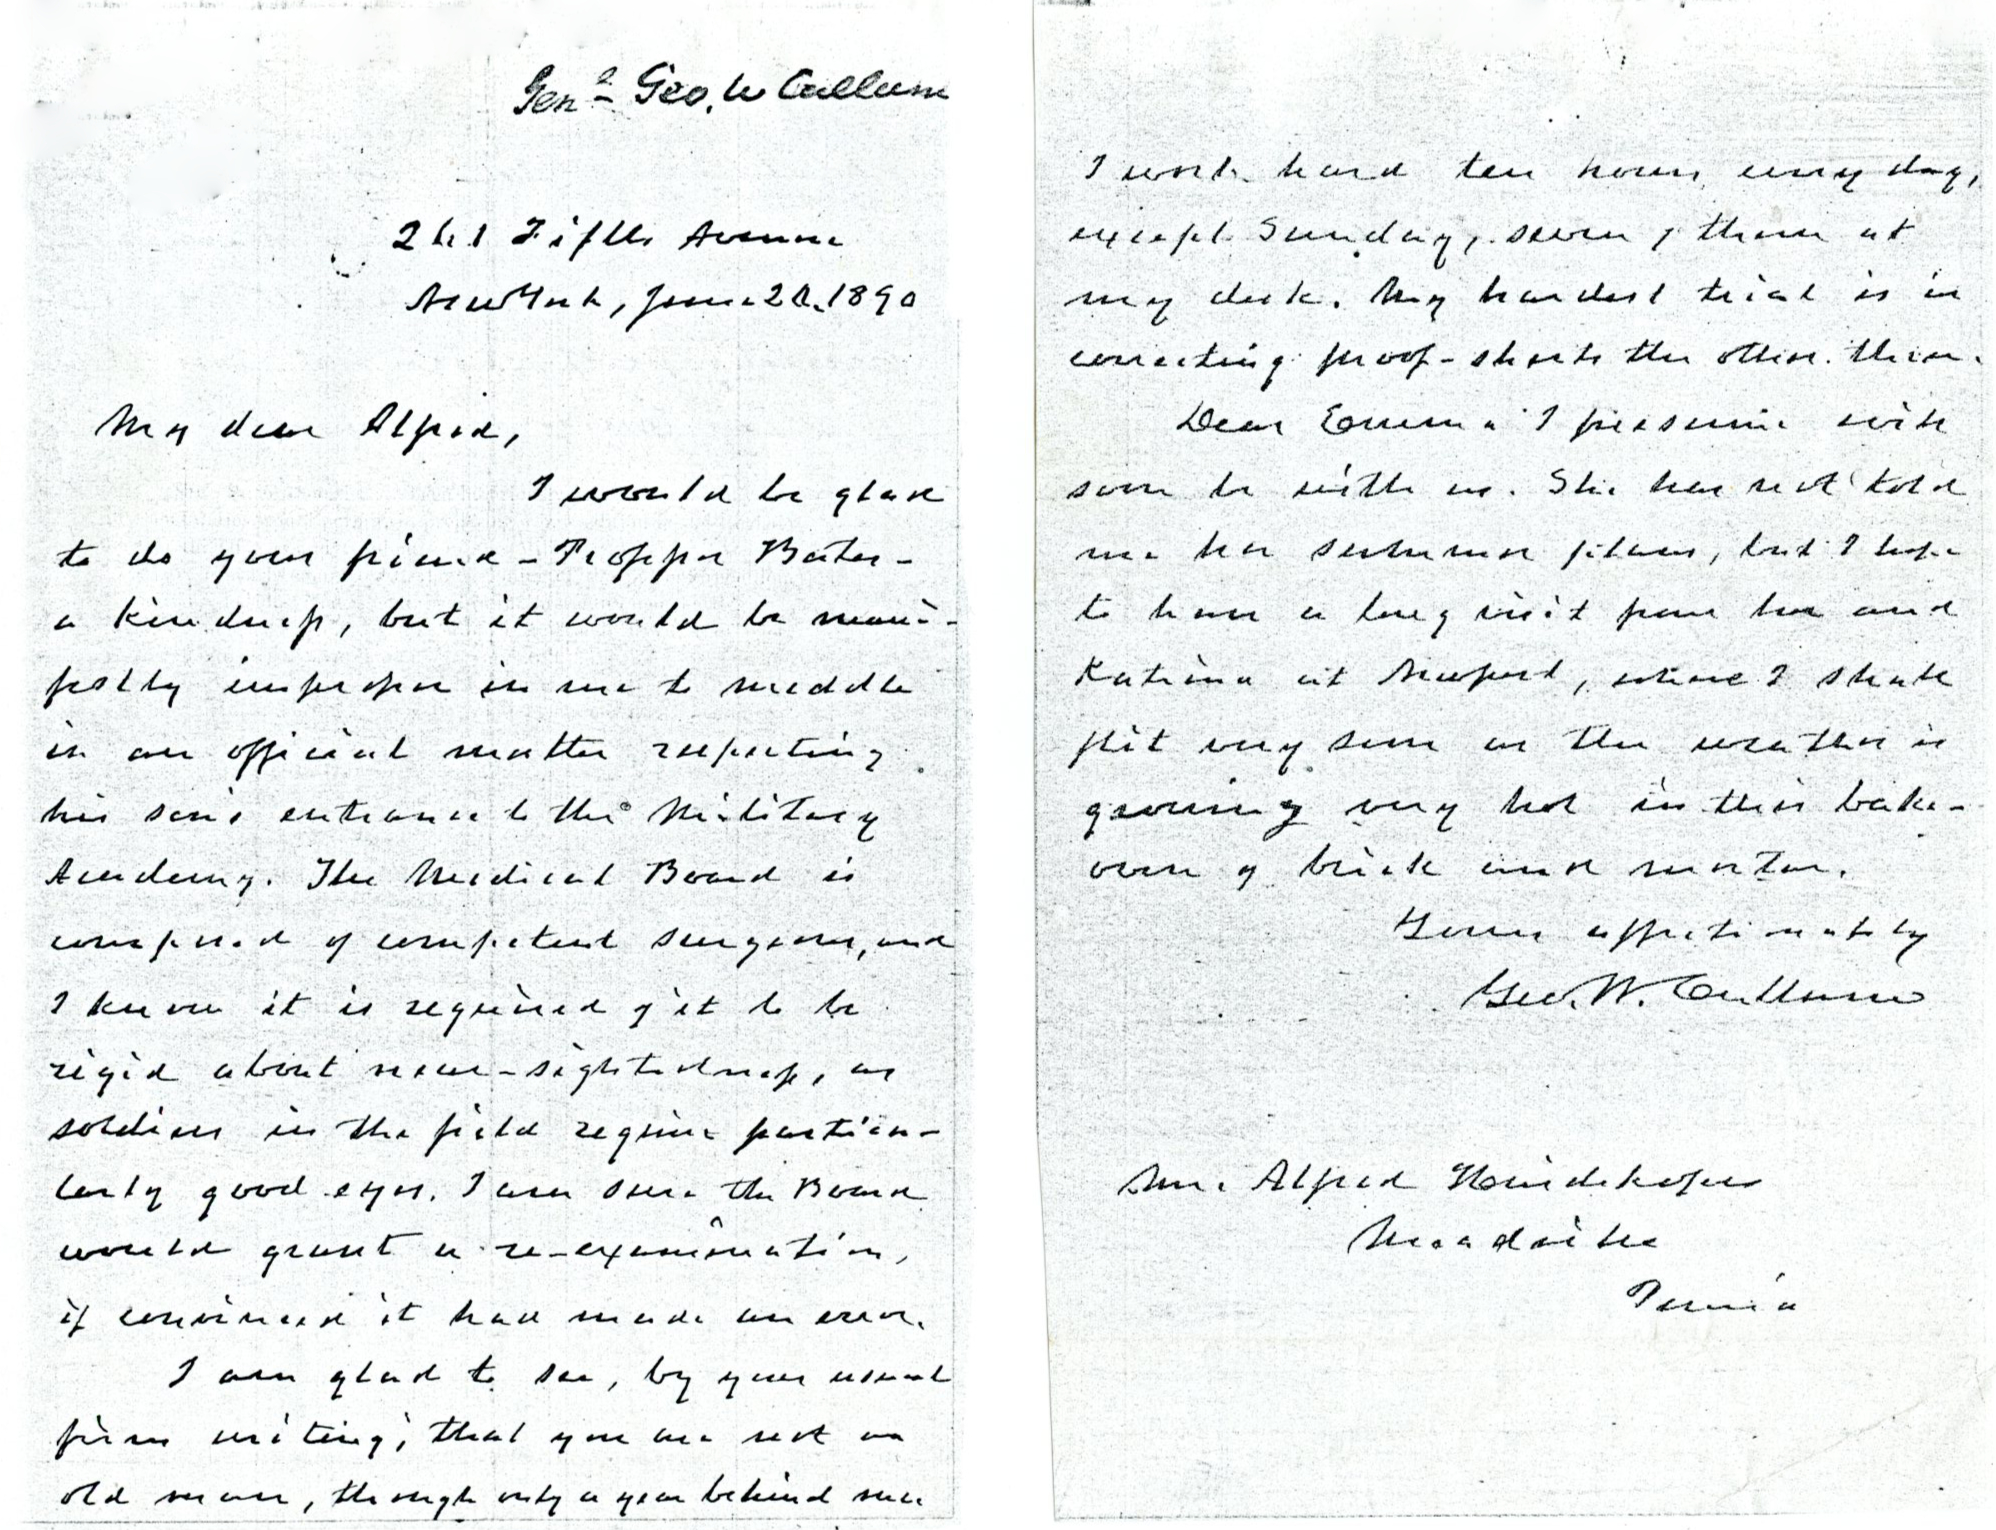 Genl Geo. W Cullum
261 Fifth Avenue
New York, June 20, 1890
My dear Alfred,
I would be glad
to do your friend - Professor Bates -
a kindness, but it would be mani-
festly improper in me to meddle
in an official matter respecting
his son's entrance to the Military
Academy. The Medical Board is
composed of competent surgeons, and
I know it is required of it to be
rigid about near-sightedness, as
soldiers in the field require particu-
larly good eyes. I am sure the Board
would grant a re-examination,
if convinced it had made an error.
I am glad to see, by your usual
firm writing, that you are not an
old man, though only a year behind me
I work hard ten hours every day,
except Sunday, seven of them at
my desk. My hardest trial is in
correcting proof-sheets the other three.
Dear Emma I presume will
soon be with us. She has not told
me her summer plans, but I hope
to have a long visit from her and
Katrina at Newport, where I shall
flit very soon as the weather is
growing very hot in this bake-
oven of brick and mortar.
Yours affectionately
Geo. W. Cullum
Mr. Alfred Huidekoper
Meadville
Penn'a